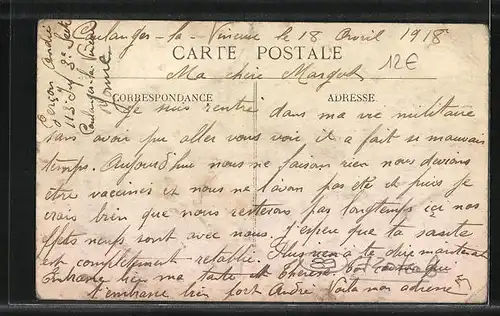 Coulanges-la-Vineuse le 18 Avril 1918
CARTE POSTALE
12€
André
115
Coulanges-la-Vineuse
Yonne
Ma chère Margot
CORRESPONDANCE
ADRESSE
Je suis rentré dans ma vie militaire
sans avoir pu aller vous voir il a fait si mauvais
temps. Aujourd'hui nous ne faison rien nous devions
être vaccinés et nous ne l'avon pas été et puis je
crois bien que nous resterons pas longtemps ici nos
effets neufs sont avec nous. j'espere que ta santé
est complètement retablie. Plus rien a te dire maintenant
Embrasse bien ma tante et Thérèse
t'embrasse bien fort André Voila mon adresse